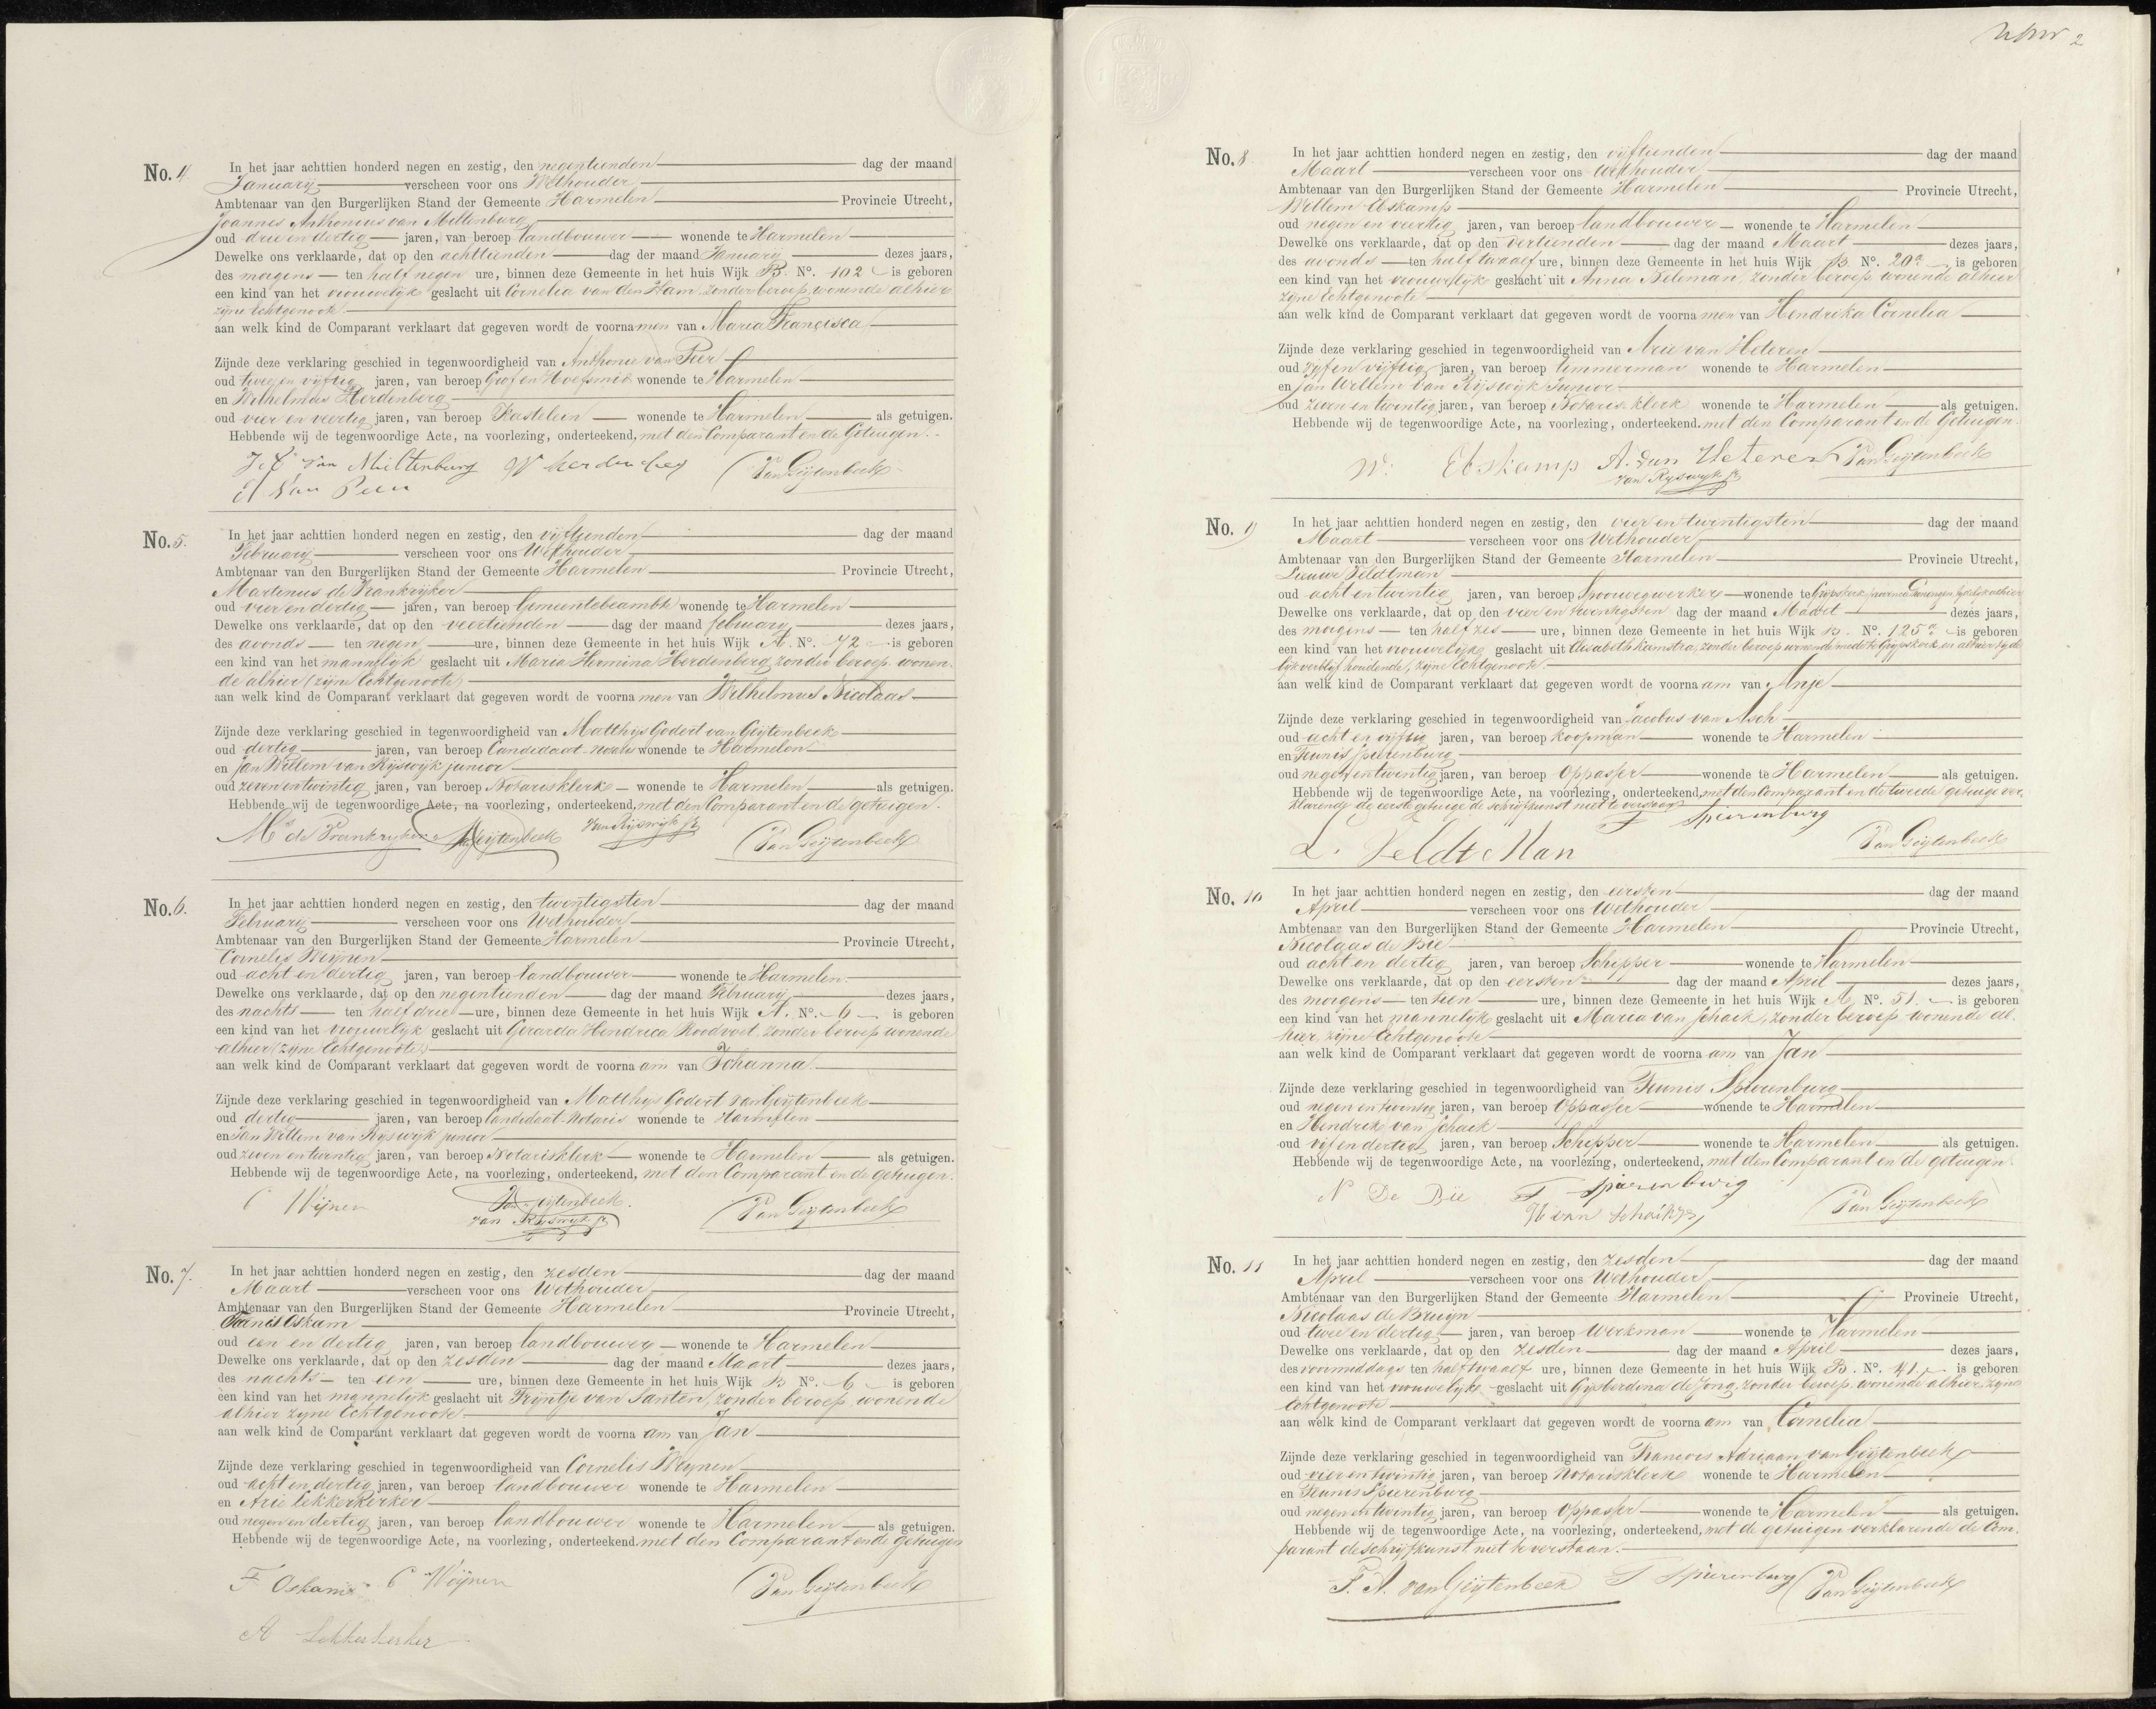 No. 4
In het jaar achttien honderd negen en zestig, den negentienden dag der maand
January verscheen voor ons Wethouder
Ambtenaar van den Burgerlijken Stand der Gemeente Harmelen Provincie Utrecht,
Joannes Anthonius van Miltenburg
oud drie en dertig jaren, van beroep landbouwer wonende te Harmelen
Dewelke ons verklaarde, dat op den achttienden dag der maand January dezes jaars,
des morgens ten half negen ure, binnen deze Gemeente in het huis Wijk B. No. 102 is geboren
een kind van het vrouwelijk geslacht uit Cornelia van den Ham, zonder beroep, wonende alhier
zijne Echtgenoote.
aan welk kind de Comparant verklaart dat gegeven wordt de voornamen van Maria Francisca
Zijnde deze verklaring geschied in tegenwoordigheid van Anthonie van Peer
oud twee en vijftig jaren, van beroep Grof en Hoefsmid wonende te Harmelen
en Wilhelmus Herdenberg
oud vier en veertig jaren, van beroep Kastelein wonende te Harmelen als getuigen.
Hebbende wij de tegenwoordige Acte, na voorlezing, onderteekend, met den Comparant en de Getuigen.
van Miltenburg W herdenberg Van Geijtenbeek
A van Peer
No. 5.
In het jaar achttien honderd negen en zestig, den vijftienden dag der maand
February verscheen voor ons Wethouder
Ambtenaar van den Burgerlijken Stand der Gemeente Harmelen Provincie Utrecht,
Martinus de Frankrijker
oud vier en dertig jaren, van beroep Gemeentebeambte wonende te Harmelen
Dewelke ons verklaarde, dat op den veertienden dag der maand february dezes jaars,
des avonds ten negen ure, binnen deze Gemeente in het huis Wijk A. No. 72 is geboren
een kind van het mannelijk geslacht uit Maria Hermina Herdenberg zonder beroep wonen-
de alhier (zijne Echtgenoote)
aan welk kind de Comparant verklaart dat gegeven wordt de voornamen van Wilhelmus Nicolaas
Zijnde deze verklaring geschied in tegenwoordigheid van Matthijs Godert van Geijtenbeek
oud dertig jaren, van beroep Candidaat-Notaris wonende te Harmelen
en Jan Willem van Rijswijk junior
oud zeven en twintig jaren, van beroep Notarisklerk wonende te Harmelen als getuigen.
Hebbende wij de tegenwoordige Acte, na voorlezing, onderteekend, met den Comparant en de getuigen.
Ms de Frankryker Van Geijtenbeek Van Rijswijk Jr Van Geijtenbeek
No. 6.
In het jaar achttien honderd negen en zestig, den twintigsten dag der maand
February verscheen voor ons Wethouder
Ambtenaar van den Burgerlijken Stand der Gemeente Harmelen Provincie Utrecht,
Cornelis Weijnen
oud acht en dertig jaren, van beroep landbouwer wonende te Harmelen
Dewelke ons verklaarde, dat op den negentienden dag der maand February dezes jaars,
des nachts ten half drie ure, binnen deze Gemeente in het huis Wijk A. No. 6 is geboren
een kind van het vrouwelijk geslacht uit Gerarda Hendrica Roodvoet zonder beroep wonende
alhier (zijne Echtgenoote)
aan welk kind de Comparant verklaart dat gegeven wordt de voornaam van Johanna
Zijnde deze verklaring geschied in tegenwoordigheid van Matthijs Godert van Geijtenbeek
oud dertig jaren, van beroep Candidaat-Notaris wonende te Harmelen
en Jan Willem van Rijswijk junior
oud zeven en twintig jaren, van beroep Notarisklerk wonende te Harmelen als getuigen.
Hebbende wij de tegenwoordige Acte, na voorlezing, onderteekend, met den Comparant en de getuigen.
C Wijnen Van Geijtenbeek Van Geijtenbeek
van Rijswijk Jr
No. 7.
In het jaar achttien honderd negen en zestig, den zesden dag der maand
Maart verscheen voor ons Wethouder
Ambtenaar van den Burgerlijken Stand der Gemeente Harmelen Provincie Utrecht,
Fannis Oskam
oud een en dertig jaren, van beroep landbouwer wonende te Harmelen
Dewelke ons verklaarde, dat op den zesden dag der maand Maart dezes jaars,
des nachts ten een ure, binnen deze Gemeente in het huis Wijk B No. 6 is geboren
een kind van het mannelijk geslacht uit Trijntje van Santen, zonder beroep wonende
alhier zijne Echtgenoote
aan welk kind de Comparant verklaart dat gegeven wordt de voornaam van Jan
Zijnde deze verklaring geschied in tegenwoordigheid van Cornelis Weijnen
oud acht en dertig jaren, van beroep landbouwer wonende te Harmelen
en Arie Lekkerkerker
oud negen en dertig jaren, van beroep landbouwer wonende te Harmelen als getuigen.
Hebbende wij de tegenwoordige Acte, na voorlezing, onderteekend. met den Comparant en de getuigen
F Oskam C Wijnen Van Geijtenbeek
A Lekkerkerker
2
No. 8
In het jaar achttien honderd negen en zestig, den vijftienden dag der maand
Maart verscheen voor ons Wethouder
Ambtenaar van den Burgerlijken Stand der Gemeente Harmelen Provincie Utrecht,
Willem Ebskamp
oud negen en veertig jaren, van beroep landbouwer wonende te Harmelen
Dewelke ons verklaarde, dat op den veertienden dag der maand Maart dezes jaars,
des avonds ten half twaalf ure, binnen deze Gemeente in het huis Wijk B. No. 20a is geboren
een kind van het vrouwelijk geslacht uit Anna Beleman, zonder beroep, wonende alhier
zijne Echtgenoote
aan welk kind de Comparant verklaart dat gegeven wordt de voornamen van Hendrika Cornelia
Zijnde deze verklaring geschied in tegenwoordigheid van Arie van Heteren
oud vijf en vijftig jaren, van beroep timmerman wonende te Harmelen
en Jan Willem van Rijswijk Junior
oud zeven en twintig jaren, van beroep Notaris-klerk wonende te Harmelen als getuigen.
Hebbende wij de tegenwoordige Acte, na voorlezing, onderteekend. met den Comparant en de Getuigen.
Wm: Ebskamp A. van Heteren Van Geijtenbeek
van Rijswijk Jr
No. 9
In het jaar achttien honderd negen en zestig, den vier en twintigsten dag der maand
Maart verscheen voor ons Wethouder
Ambtenaar van den Burgerlijken Stand der Gemeente Harmelen Provincie Utrecht,
Lieuwe Veldtman
oud acht en twintig jaren, van beroep Spoorwegwerker wonende te Grijpskerk provincie Groningen, tijdelijk alhier
Dewelke ons verklaarde, dat op den vier en twintigsten dag der maand Maart dezes jaars,
des morgens ten half zes ure, binnen deze Gemeente in het huis Wijk B. No. 125a is geboren
een kind van het vrouwelijk geslacht uit Elisabeth Kamstra, zonder beroep wonende mede te Grijpskerk en alhier tijde
lijk verblijf houdende, zijne Echtgenoote.
aan welk kind de Comparant verklaart dat gegeven wordt de voornaam van Anje
Zijnde deze verklaring geschied in tegenwoordigheid van Jacobus van Asch
oud acht en vijftig jaren, van beroep koopman wonende te Harmelen
en Teunis Spierenburg
oud negen en twintig jaren, van beroep Oppasser wonende te Harmelen als getuigen.
Hebbende wij de tegenwoordige Acte, na voorlezing, onderteekend, met den Comparant en de tweede getuige ver
klarende de eerste getuige de schrijfkunst niet te verstaan
T Spierenburg
L. Veldt Man Van Geijtenbeek
No. 10
In het jaar achttien honderd negen en zestig, den eersten dag der maand
April verscheen voor ons Wethouder
Ambtenaar van den Burgerlijken Stand der Gemeente Harmelen Provincie Utrecht,
Nicolaas de Bie
oud acht en dertig jaren, van beroep Schipper wonende te Harmelen
Dewelke ons verklaarde, dat op den eersten dag der maand April dezes jaars,
des morgens ten tien ure, binnen deze Gemeente in het huis Wijk A, No. 51. is geboren
een kind van het mannelijk geslacht uit Maria van Schaik, zonder beroep wonende al-
hier, zijne Echtgenoote
aan welk kind de Comparant verklaart dat gegeven wordt de voornaam van Jan
Zijnde deze verklaring geschied in tegenwoordigheid van Teunis Spierenburg
oud negen en twintig jaren, van beroep Oppasser wonende te Harmelen
en Hendrik van Schaik
oud vijf en dertig jaren, van beroep Schipper wonende te Harmelen als getuigen.
Hebbende wij de tegenwoordige Acte, na voorlezing, onderteekend, met den Comparant en de getuigen.
N De Bie T Spierenburg Van Geijtenbeek
H van Schaik
No. 11
In het jaar achttien honderd negen en zestig, den zesden dag der maand
April verscheen voor ons Wethouder
Ambtenaar van den Burgerlijken Stand der Gemeente Harmelen Provincie Utrecht,
Nicolaas de Bruijn
oud twee en dertig jaren, van beroep Werkman wonende te Harmelen
Dewelke ons verklaarde, dat op den zesden dag der maand April dezes jaars,
des voormiddags ten half twaalf ure, binnen deze Gemeente in het huis Wijk B. No. 41 is geboren
een kind van het vrouwelijk geslacht uit Gijsberdina de Jong, zonder beroep, wonende alhier, zijne
Echtgenoote
aan welk kind de Comparant verklaart dat gegeven wordt de voornaam van Cornelia
Zijnde deze verklaring geschied in tegenwoordigheid van Francois Adriaan van Geijtenbeek
oud vier en twintig jaren, van beroep Notarisklerk wonende te Harmelen
en Teunis Spierenburg
oud negen en twintig jaren, van beroep Oppasser wonende te Harmelen als getuigen.
Hebbende wij de tegenwoordige Acte, na voorlezing, onderteekend, met de getuigen verklarende de Com-
parant de schrijfkunst niet te verstaan.
F. A. van Geijtenbeek T Spierenburg Van Geijtenbeek